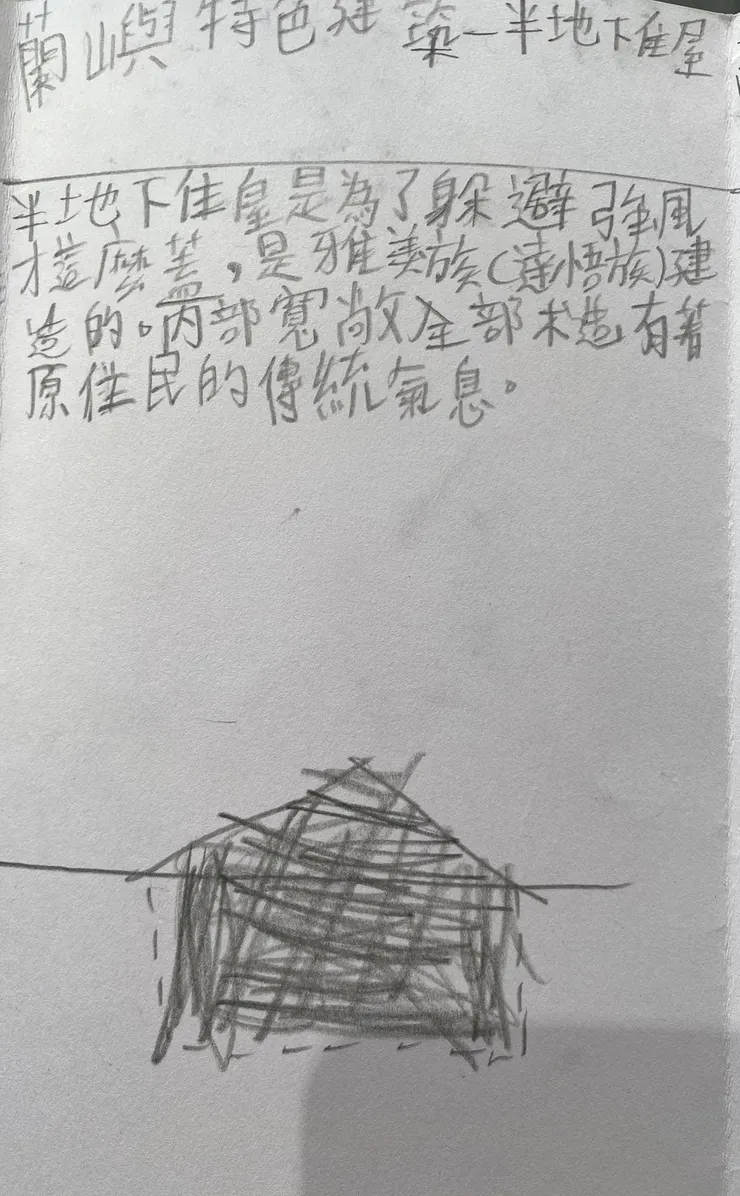 蘭嶼特色建築—半地下住屋
半地下住屋是為了躲避強風
才這麼蓋,是雅美族(達悟族)建
造的。內部寬敞全部木造有著
原住民的傳統氣息。